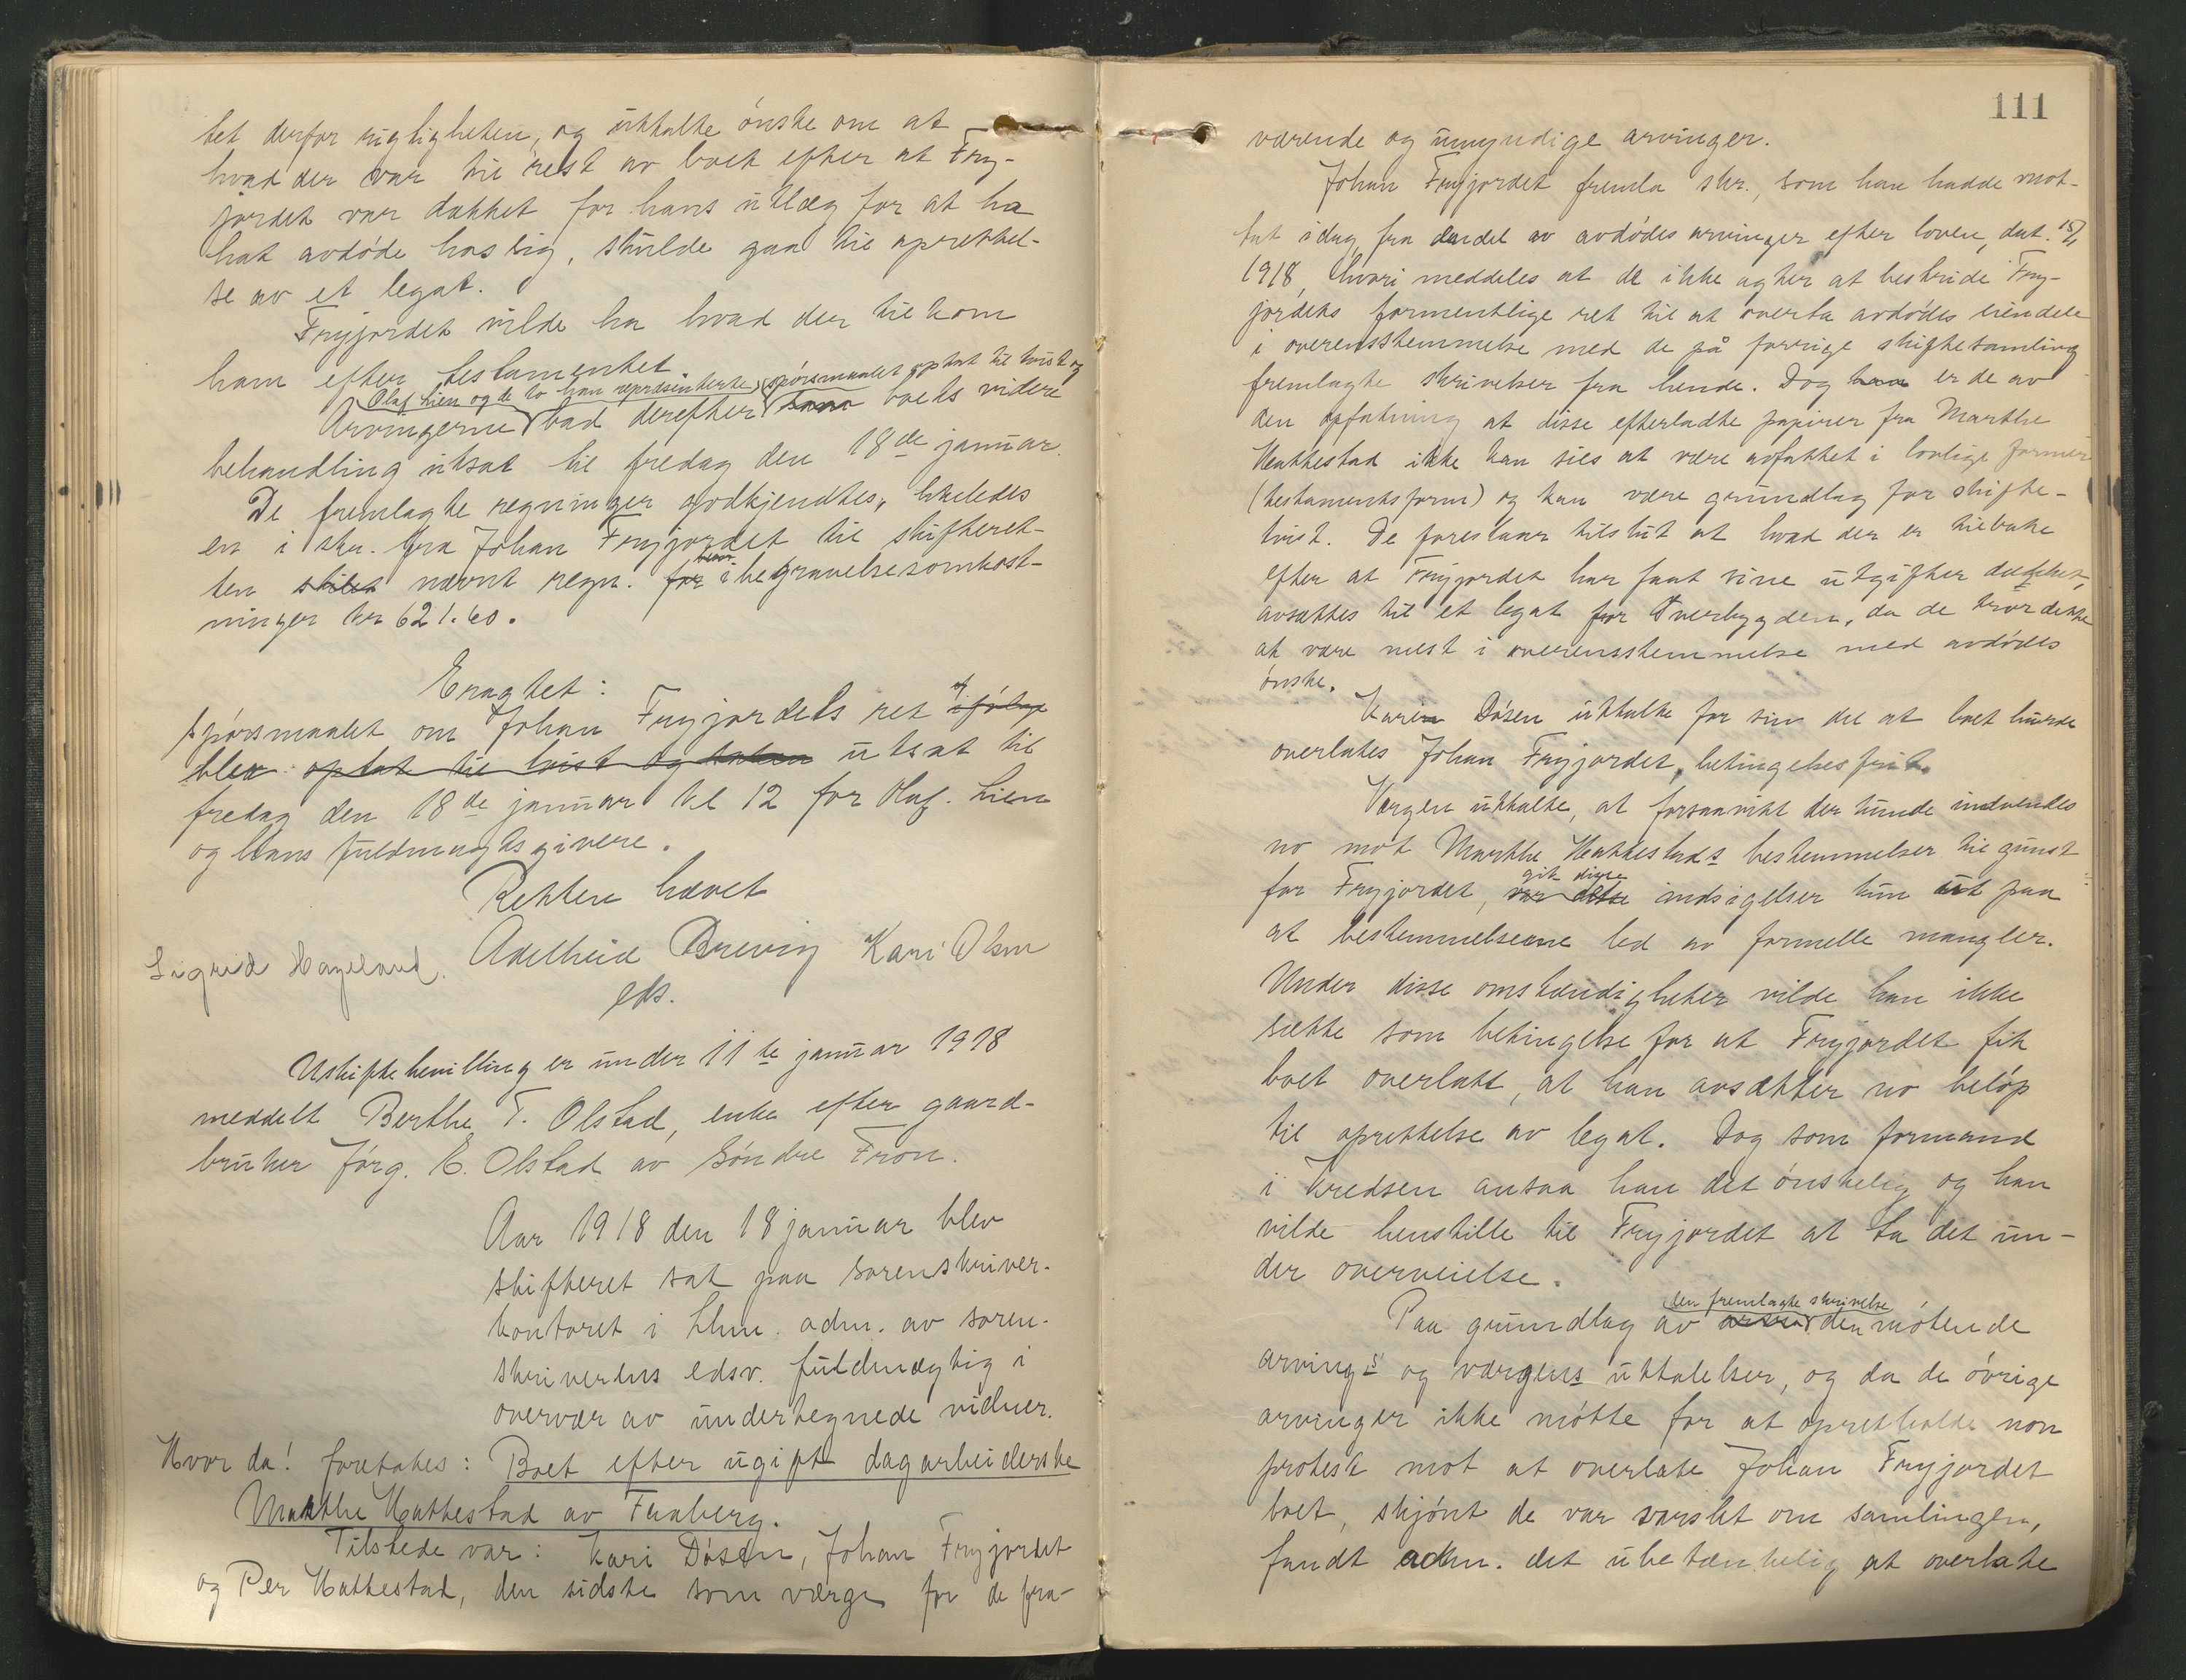 tet derfor rigtigheten, og uttalte ønske om at
hvad der var til rest av boet efter at Fry-
jordet var dækket for hans utlæg for at ha
hat avdøde hos sig, skulde gaa til oprettel-
se av et legat.
Fryjordet vilde ha hvad der tilkom
ham efter testamentet.
Olaf Lien og de to han repræsenterte spørsmaalet optat til tvist og
Arvingerne bad derefter boets videre
behandling utsat til fredag den 18de januar.
De fremlagte regninger godkjendtes, likeledes
en i skr. fra Johan Fryjordet til skifteret-
ten nævnt regn. for begravelsesomkost-
ninger kr 621.60.
Eragtet:
Spørsmaalet om Johan Fryjordets ret ifølge
blev optat til tvist og utsat til
fredag den 18de januar kl 12 for Olaf Lien
og hans fuldmagtsgivere.
Retten hævet
Adelheid Brevig Kari Olsen
Sigrid Hageland.
eds.
Uskiftebevilling er under 11te januar 1918
meddelt Berthe T. Olstad, enke efter gaard-
bruker Jørg. E. Olstad av Søndre Fron.
Aar 1918 den 18 januar blev
skifteret sat paa sorenskriver-
kontoret i Lhm. adm. av soren-
skriverens edsv. fuldmægtig i
overvær av undertegnede vidner.
Hvor da! foretokes: Boet efter ugift dagarbeiderske
Marthe Hattestad av Faaberg.
Tilstede var: Kari Døsen, Johan Fryjordet
og Per Hattestad, den sidste som værge for de fra-
111
værende og umyndige arvinger.
Johan Fryjordet fremla skr., som han hadde mot-
tat idag fra endel av avdødes arvinger efter loven, dat. 15/1
1918, hvori meddeles at de ikke agter at bestride Fry-
jordets formentlige ret til at overta avdødes eiendele
i overensstemmelse med de på forrige skiftesamling
fremlagte skrivelser fra hende. Dog er de av
den opfatning at disse efterladte papirer fra Marthe
Hattestad ikke kan sies at være avfattet i lovlige former
(testamentsform) og kan være grundlag for skifte-
tvist. De foreslaar tilslut at hvad der er tilbake
efter at Fryjordet har faat sine utgifter dækket,
avsættes til et legat for Øverbygden, da de tror dette
at være mest i overensstemmelse med avdødes
ønske.
Kari Døsen uttalte for sin del at boet burde
overlates Johan Fryjordet, betingelsesfrit.
Værgen uttalte, at forsaavidt der kunde indvendes
no mot Marthe Hattestads bestemmelser til gunst
git disse
for Fryjordet, var disse indsigelser kun ut paa
at bestemmelserne led av formelle mangler.
Under disse omstændigheter vilde han ikke
sætte som betingelse for at Fryjordet fik
boet overlatt, at han avsætter no beløp
til oprettelse av legat. Dog som formand
i kredsen ansaa han det ønskelig og han
vilde henstille til Fryjordet at ta det un-
der overveielse.
den fremlagte skrivelse
Paa grundlag av den møtende
arvings og værgens uttalelser, og da de øvrige
arvinger ikke møtte for at opretholde non
protest mot at overlate Johan Fryjordet
boet, skjønt de var varslet om samlingen,
fandt adm. det ubetænkelig at overlate